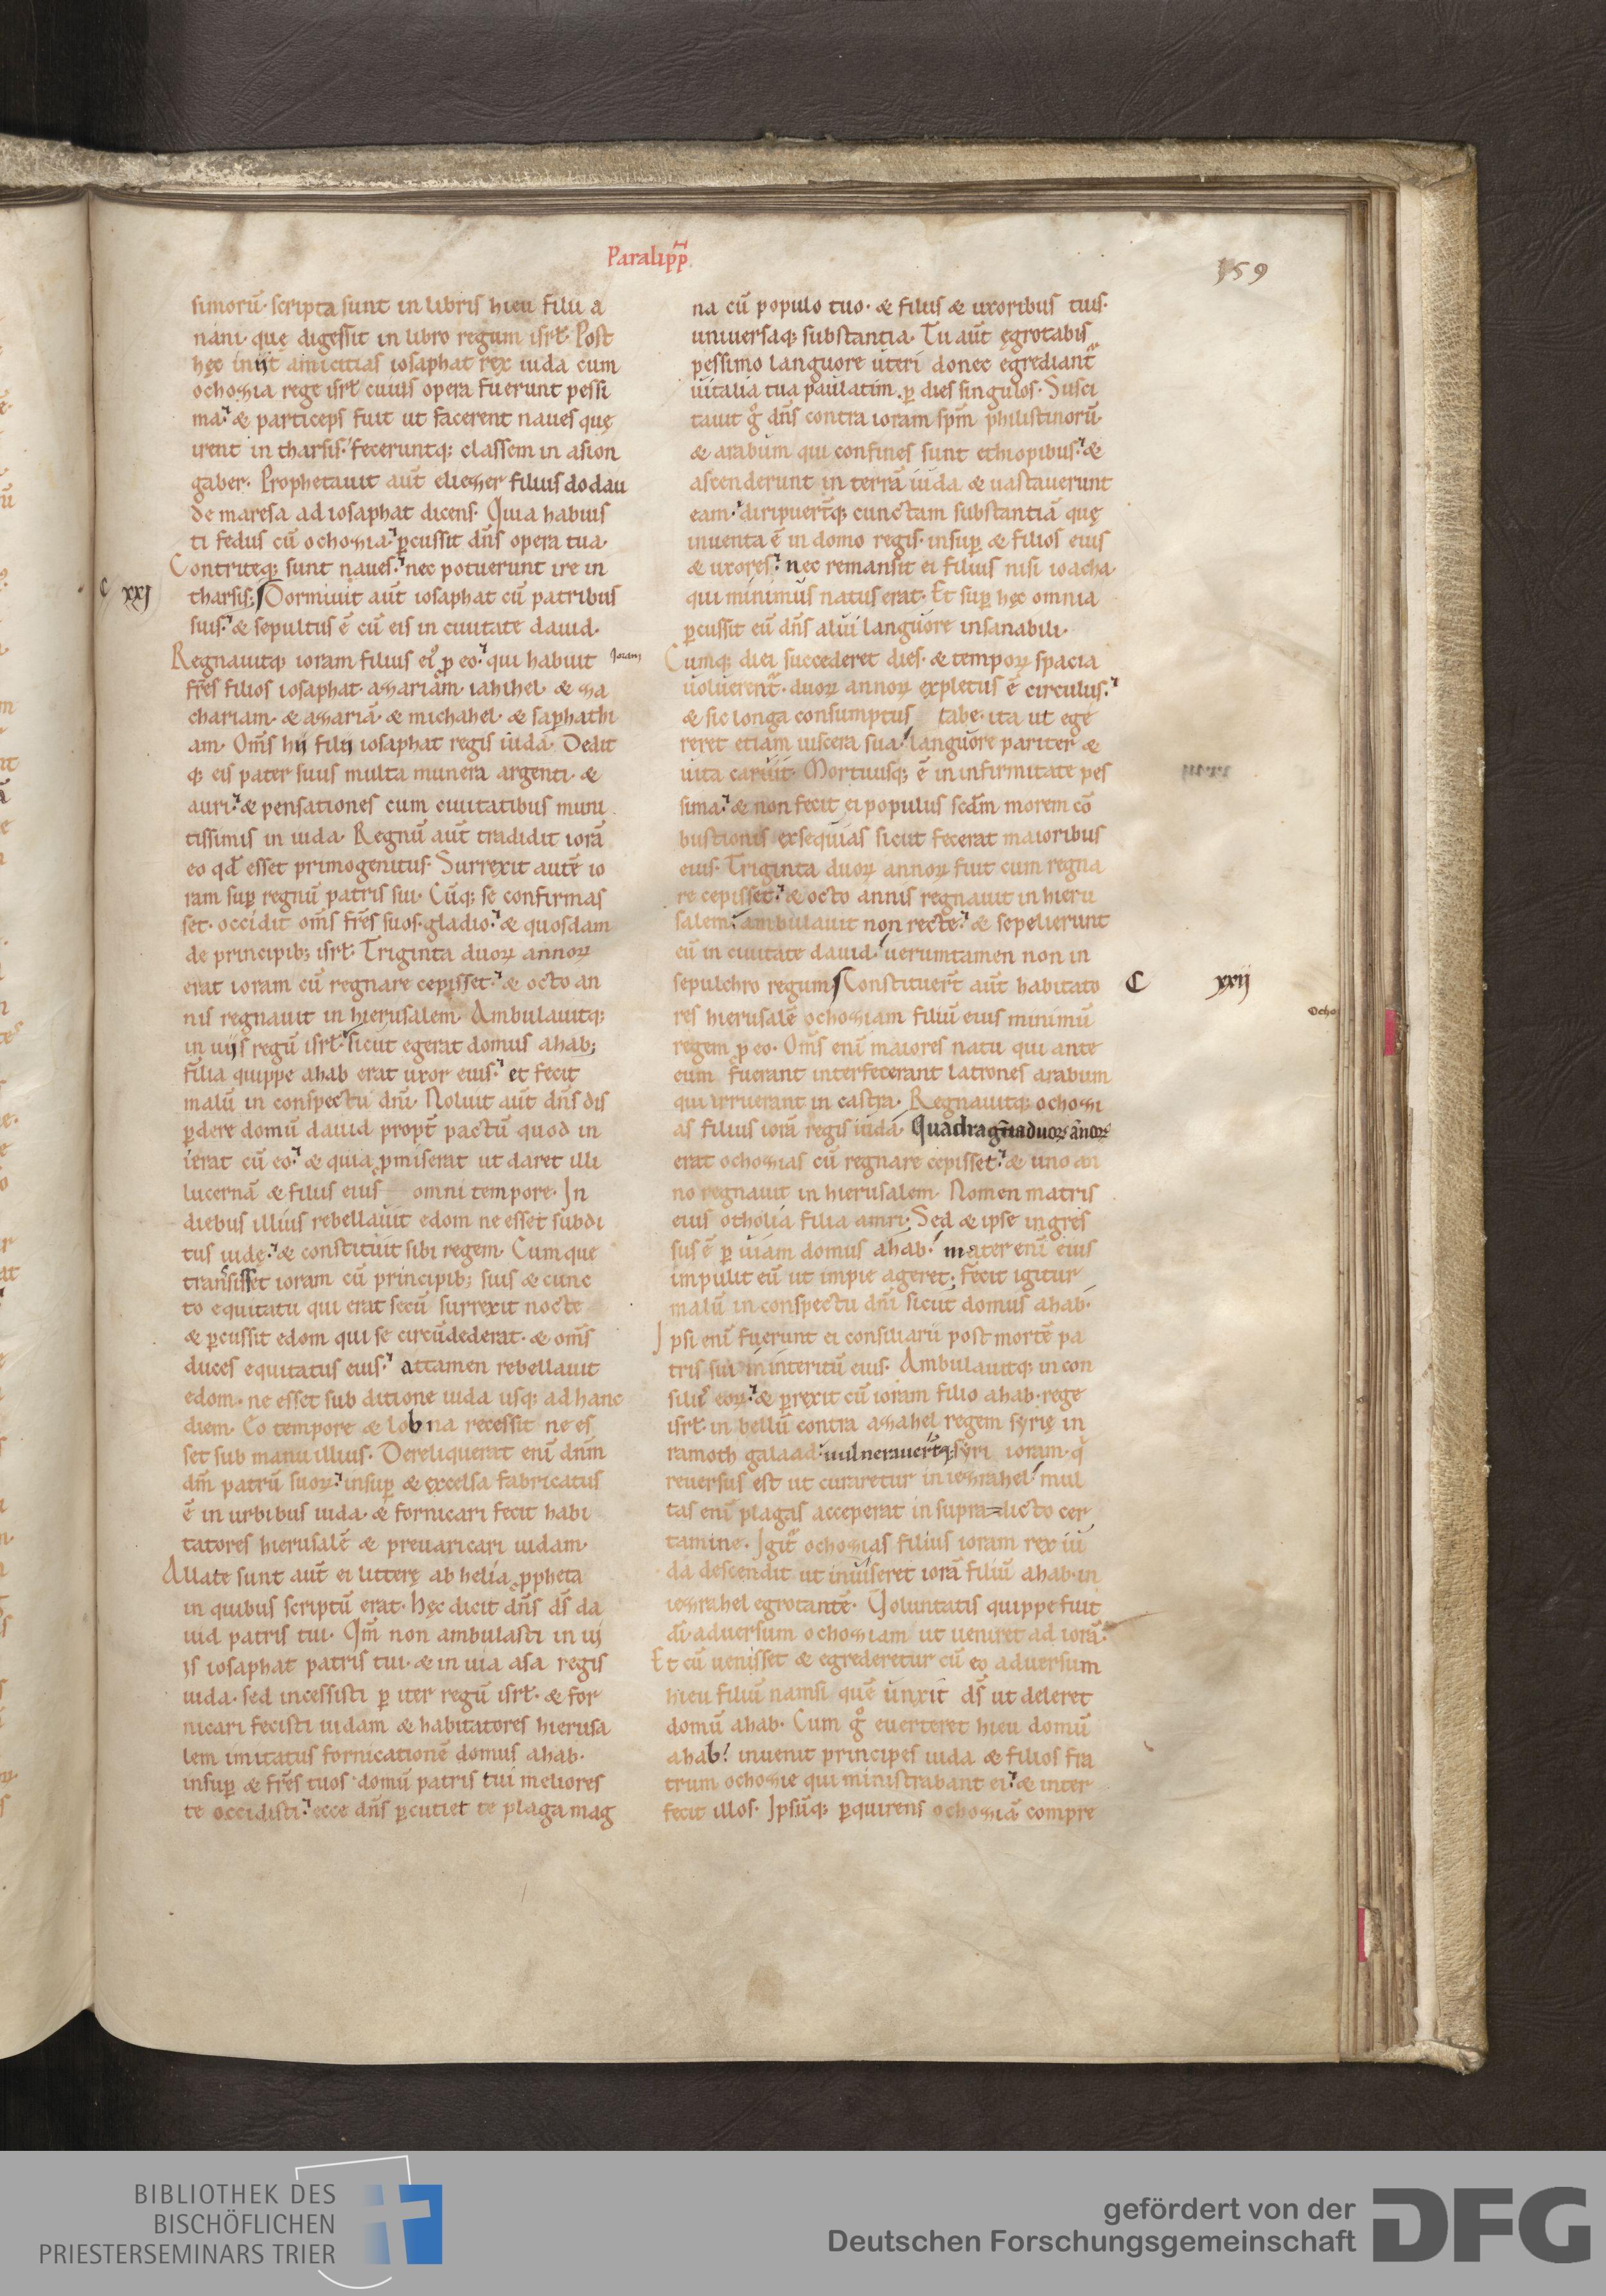 Paralipp̄
159
simorū. scripta sunt in libris hieu filii a
nani. quę digessit in libro regum isrł. Post
hęc iniit amicitias iosaphat rex iuda cum
ochozia rege isrł cuius opera fuerunt pessi
ma. & particeps fuit ut facerent naues quę
irent in tharsis. feceruntq; classem in asion
gaber. Prophetauit aūt eliezer filius dodau
de maresa ad iosaphat dicens. Quia habuis
ti fedus cū ochozia. ꝑcussit dn̄s opera tua.
Contriteq; sunt naues. nec potuerunt ire in
C xxj
tharsis; Dormiuit aūt iosaphat cū patribus
suis. & sepultus ē cū eis in ciuitate dauid.
Regnauitq; ioram filius ei᷒ ꝓ eo. qui habuit
Joram
fr̄es filios iosaphat. azariam. iahihel. & za
chariam. & azariā. & michahel. & saphathi
am. Om̄s hij filij iosaphat regis iuda. Dedit
q; eis pater suus multa munera argenti. &
auri. & pensationes cum ciuitatibus muni
tissimis in iuda. Regnū aūt tradidit iorā
eo qđ esset primogenitus. Surrexit autē io
ram suꝑ regnū patris sui. Cūq; se confirmas
set. occidit om̄s fr̄es suos. gladio. & quosdam
de principib; isrł. Triginta duoꝝ annoꝝ
erat ioram cū regnare cepisset. & octo an
nis regnauit in hierusalem. Ambulauitq;
in uijs regū isrł. sicut egerat domus ahab;
filia quippe ahab erat uxor eius. et fecit
malū in conspectu dn̄i. Noluit aūt dn̄s dis
ꝑdere domū dauid propt̄ pactū quod in
ierat cū eo. & quia ꝓmiserat ut daret illi
lucernā & filiis eius omni tempore. In
diebus illius rebellauit edom ne esset subdi
tus iudę. & constituit sibi regem. Cumque
transisset ioram cū principib; suis & cunc
to equitatu qui erat secū surrexit nocte
& ꝑcussit edom qui se circūdederat. & om̄s
duces equitatus eius. attamen rebellauit
edom. ne esset sub ditione iuda usq; ad hanc
diem. Eo tempore & lobna recessit ne es
set sub manu illius. Dereliquerat enī dn̄m
dm̄ patrū suoꝝ. insuꝑ & excelsa fabricatus
ē in urbibus iuda. & fornicari fecit habi
tatores hierusalē & preuaricari iudam.
Allate sunt aūt ei litterę ab helia ꝓpheta
in quibus scriptū erat. Hęc dicit dn̄s ds̄ da
uid patris tui. Qm̄ non ambulasti in uj
js iosaphat patris tui. & in uia asa regis
iuda. sed incessisti ꝑ iter regū isrł. & for
nicari fecisti iudam & habitatores hierusa
lem imitatus fornicationē domus ahab.
insuꝑ & fr̄es tuos domū patris tui meliores
te occidisti. ecce dn̄s ꝑcutiet te plaga mag
na cū populo tuo. & filiis & uxoribus tuis.
uniuersaq; substantia. Tu aūt ęgrotabis
pessimo languore uteri donec egrediant᷑
uitalia tua paulatim ꝑ dies singulos. Susci
tauit gͦ dn̄s contra ioram spm̄ philistinorū.
& arabum qui confines sunt ethiopibus. &
ascenderunt in terrā iuda & uastauerunt
eam. diripuer̄tq; cunctam substantiā quę
inuenta ē in domo regis. insuꝑ & filios eius
& uxores. nec remansit ei filius nisi ioacha.
qui minimus natus erat. Et suꝑ hęc omnia
ꝑcussit eū dn̄s alui languore insanabili.
Cumq; diei succederet dies. & tempoꝝ spacia
uoluerent᷑. duoꝝ annoꝝ expletus ē circulus.
& sic longa consumptus tabe. ita ut ege
reret etiam uiscera sua. languore pariter &
uita caruit. Mortuusq; ē in infirmitate pes
sima. & non fecit ei populus scđm morem cō
bustionis exsequias sicut fecerat maioribus
eius. Triginta duoꝝ annoꝝ fuit cum regna
re cepisset. & octo annis regnauit in hieru
salem. ambulauit non recte. & sepelierunt
eū in ciuitate dauid. uerumtamen non in
sepulchro regum. Constituer̄t aūt habitato
C xxij
res hierusalē ochoziam filiū eius minimū
Ocho
regem ꝓ eo. Om̄s enī maiores natu qui ante
eum fuerant interfecerant latrones arabum
qui irruerant in castra. Regnauitq; ochozi
as filius iorā regis iuda. Quadragīta duoꝝ ānoꝝ
erat ochozias cū regnare cepisset. & uno an
no regnauit in hierusalem. Nomen matris
eius otholia filia amri. Sed & ipse ingres
sus ē ꝑ uiam domus ahab. mater enī eius
impulit eū ut impie ageret; fecit igitur
malū in conspectu dn̄i sicut domus ahab.
Ipsi enī fuerunt ei consiliarii post mortē pa
tris sui in interitū eius. Ambulauitq; in con
siliis eoꝝ. & ꝑrexit cū ioram filio ahab. rege
isrł. in bellū contra azahel regem syrię in
ramoth galaad. uulnerauer̄tq; syri ioram. q
reuersus est ut curaretur in iezrahel. mul
tas enī plagas acceperat in supradicto cer
tamine. Igit᷑ ochozias filius ioram rex iu
da descendit ut inuiseret iorā filiū ahab. in
iezrahel egrotantē. Voluntatis quippe fuit
di. aduersum ochoziam ut ueniret ad iorā.
Et cū uenisset & egrederetur cū eo aduersum
hieu filiū namsi quē unxit ds̄ ut deleret
domū ahab. Cum gͦ euerteret hieu domū
ahab. inuenit principes iuda & filios fra
trum ochozie qui ministrabant ei. & inter
fecit illos. Ipsūq; ꝑquirens ochoziā compre
BIBLIOTHEK DES
BISCHÖFLICHEN
PRIESTERSEMINARS TRIER
gefördert von der
Deutschen Forschungsgemeinschaft
DFG